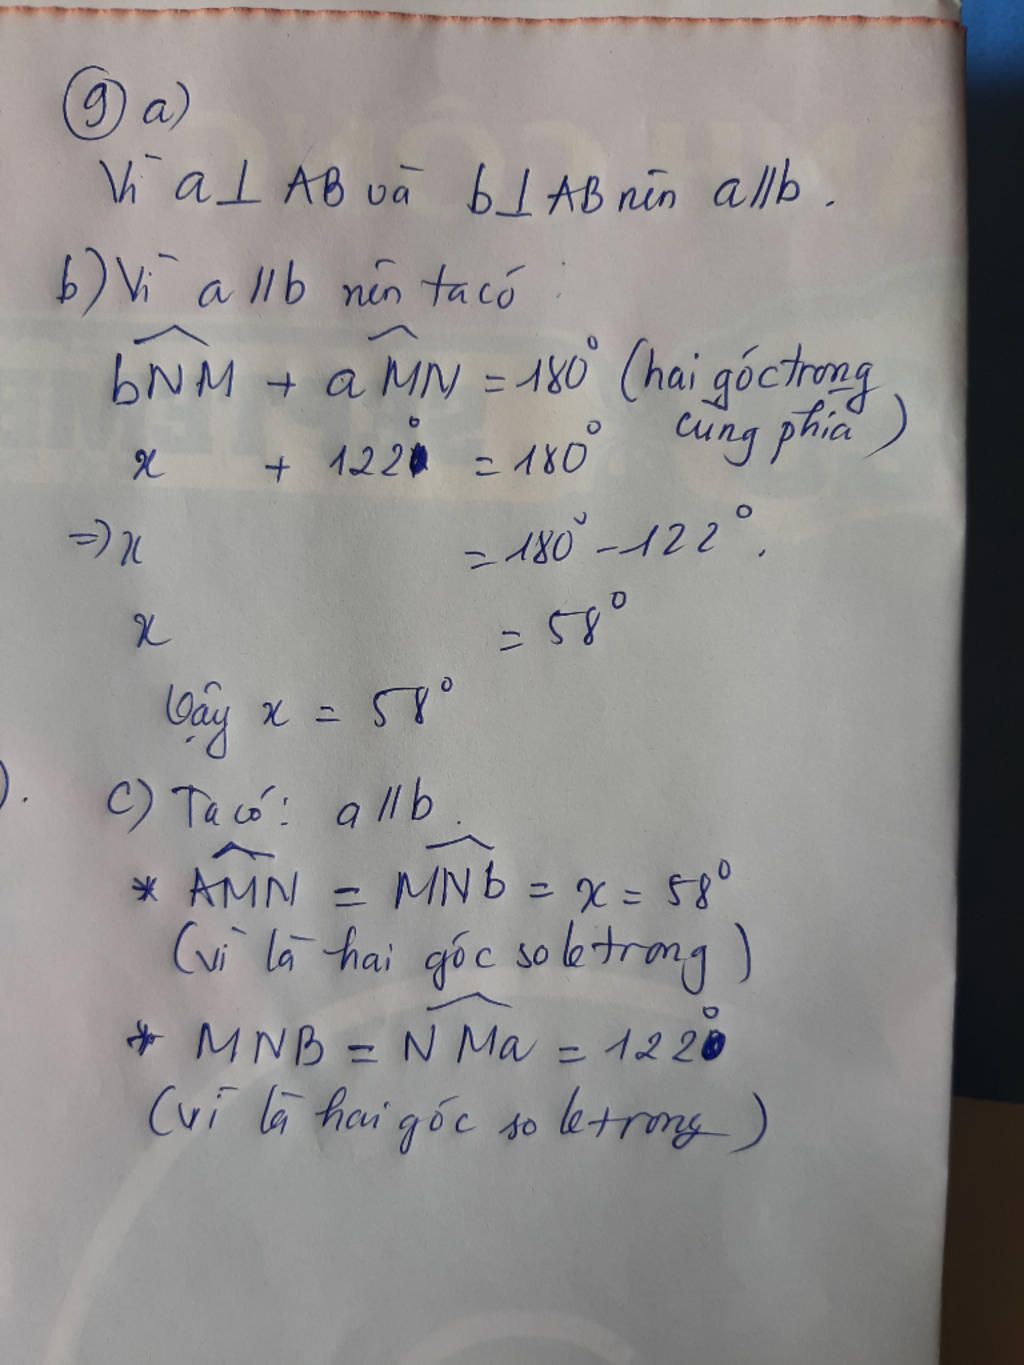 9 a)
Vì a⊥AB và b⊥AB nên a//b.
b) Vì a//b nên ta có:
bNM + aMN = 180° (hai góc trong
cùng phía)
x + 122° = 180°
=> x = 180° - 122°.
x = 58°
Vậy x = 58°
).
c) Ta có: a//b.
* AMN = MNb = x = 58°
(vì là hai góc so le trong)
* MNB = NMa = 122°
(vì là hai góc so le trong)